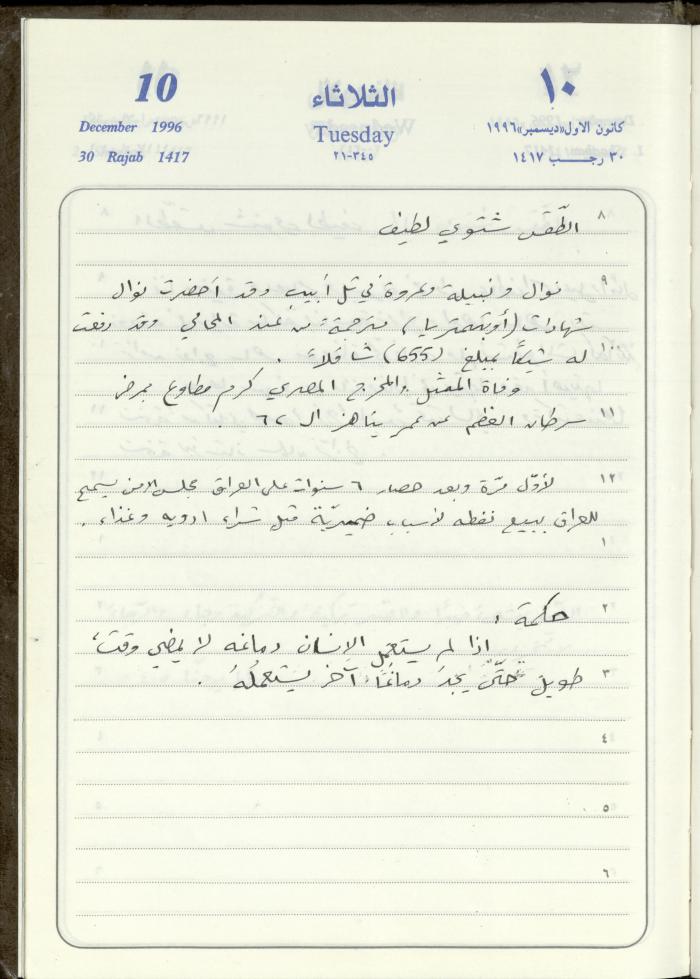 10 الثلاثاء ١٠
December 1996 Tuesday كانون الاول «ديسمبر» ١٩٩٦
30 Rajab 1417 ٣٤٥-٢١ ٣٠ رجب ١٤١٧
٨ الطّقس شتوي لطيف
٩
نوال ونبيلة وعروة في تل أبيب وقد أحضرت نوال
شهادات (أوبتمتريا) مترجمة من عند المحامي وقد دفعت
١٠ له شيكاً بمبلغ (655) شاقلاً .
وفاة الممثل والمخرج المصري كرم مطاوع بمرض
١١ سرطان العظم عن عمر يناهز ال ٦٢
١٢ لأوّل مرّة وبعد حصار ٦ سنوات على العراق مجلس الامن يسمح
للعراق ببيع نفطه لأسباب ضميريّة مثل شراء ادويه وغذاء .
١
٢ حكمة :
اذا لم يستعمل الإنسان دماغه لا يمضي وقت
٣ طويل حتّى يجدُ دماغاً آخر يستعملُهُ .
٤
٥
٦